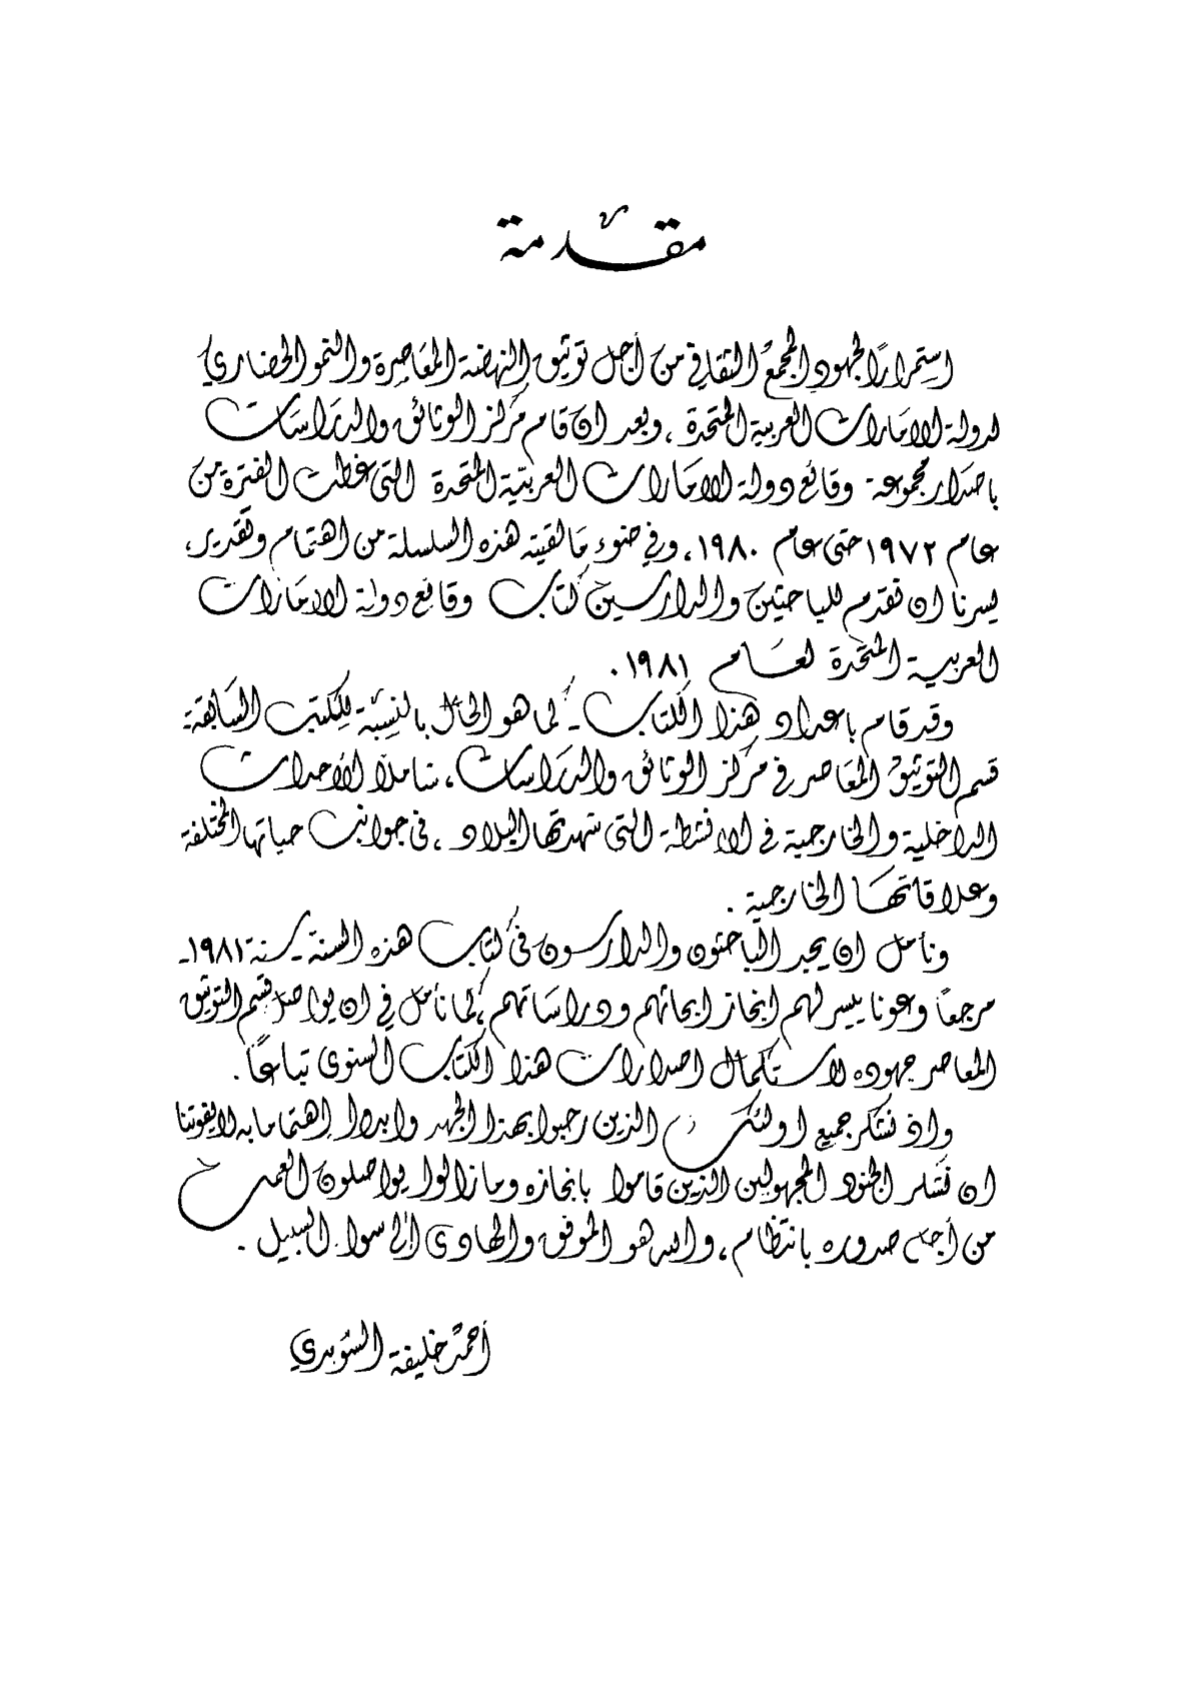 مقدمة
استمرارًا لجهود المجمع الثقافي من أجل توثيق النهضة المعاصرة والنمو الحضاري
لدولة الامارات العربية المتحدة ، وبعد ان قام مركز الوثائق والدراسات
باصدار مجموعة وقائع دولة الامارات العربية المتحدة التى غطت الفترة من
عام ١٩٧٢ حتى عام ١٩٨٠ ، وفي ضوء ما لقيته هذه السلسلة من اهتمام وتقدير ،
يسرنا ان نقدم للباحثين والدارسين كتاب وقائع دولة الامارات
العربية المتحدة لعام ١٩٨١ .
وقد قام باعداد هذا الكتاب ـ كما هو الحال بالنسبة للكتب السابقة ـ
قسم التوثيق المعاصر في مركز الوثائق والدراسات ، شاملاً الأحداث
الداخلية والخارجية في الانشطة التى شهدتها البلاد ، فى جوانب حياتها المختلفة
وعلاقاتها الخارجية .
ونأمل ان يجد الباحثون والدارسون فى كتاب هذه السنة ـ سنة ١٩٨١ ـ
مرجعاً وعونا ييسر لهم انجاز ابحاثهم ودراساتهم ، كما نأمل في ان يواصل قسم التوثيق
المعاصر جهوده لاستكمال اصدارات هذا الكتاب السنوى تباعًا .
واذ نشكر جميع اولئك الذين رحبوا بهذا الجهد وابدوا إهتماما به لا يفوتنا
ان نشكر الجنود المجهولين الذين قاموا بانجازه وما زالوا يواصلون العمل
من أجل صدوره بانتظام ، والله هو الموفق والهادى إلى سواء السبيل .
أحمد خليفة السويدي